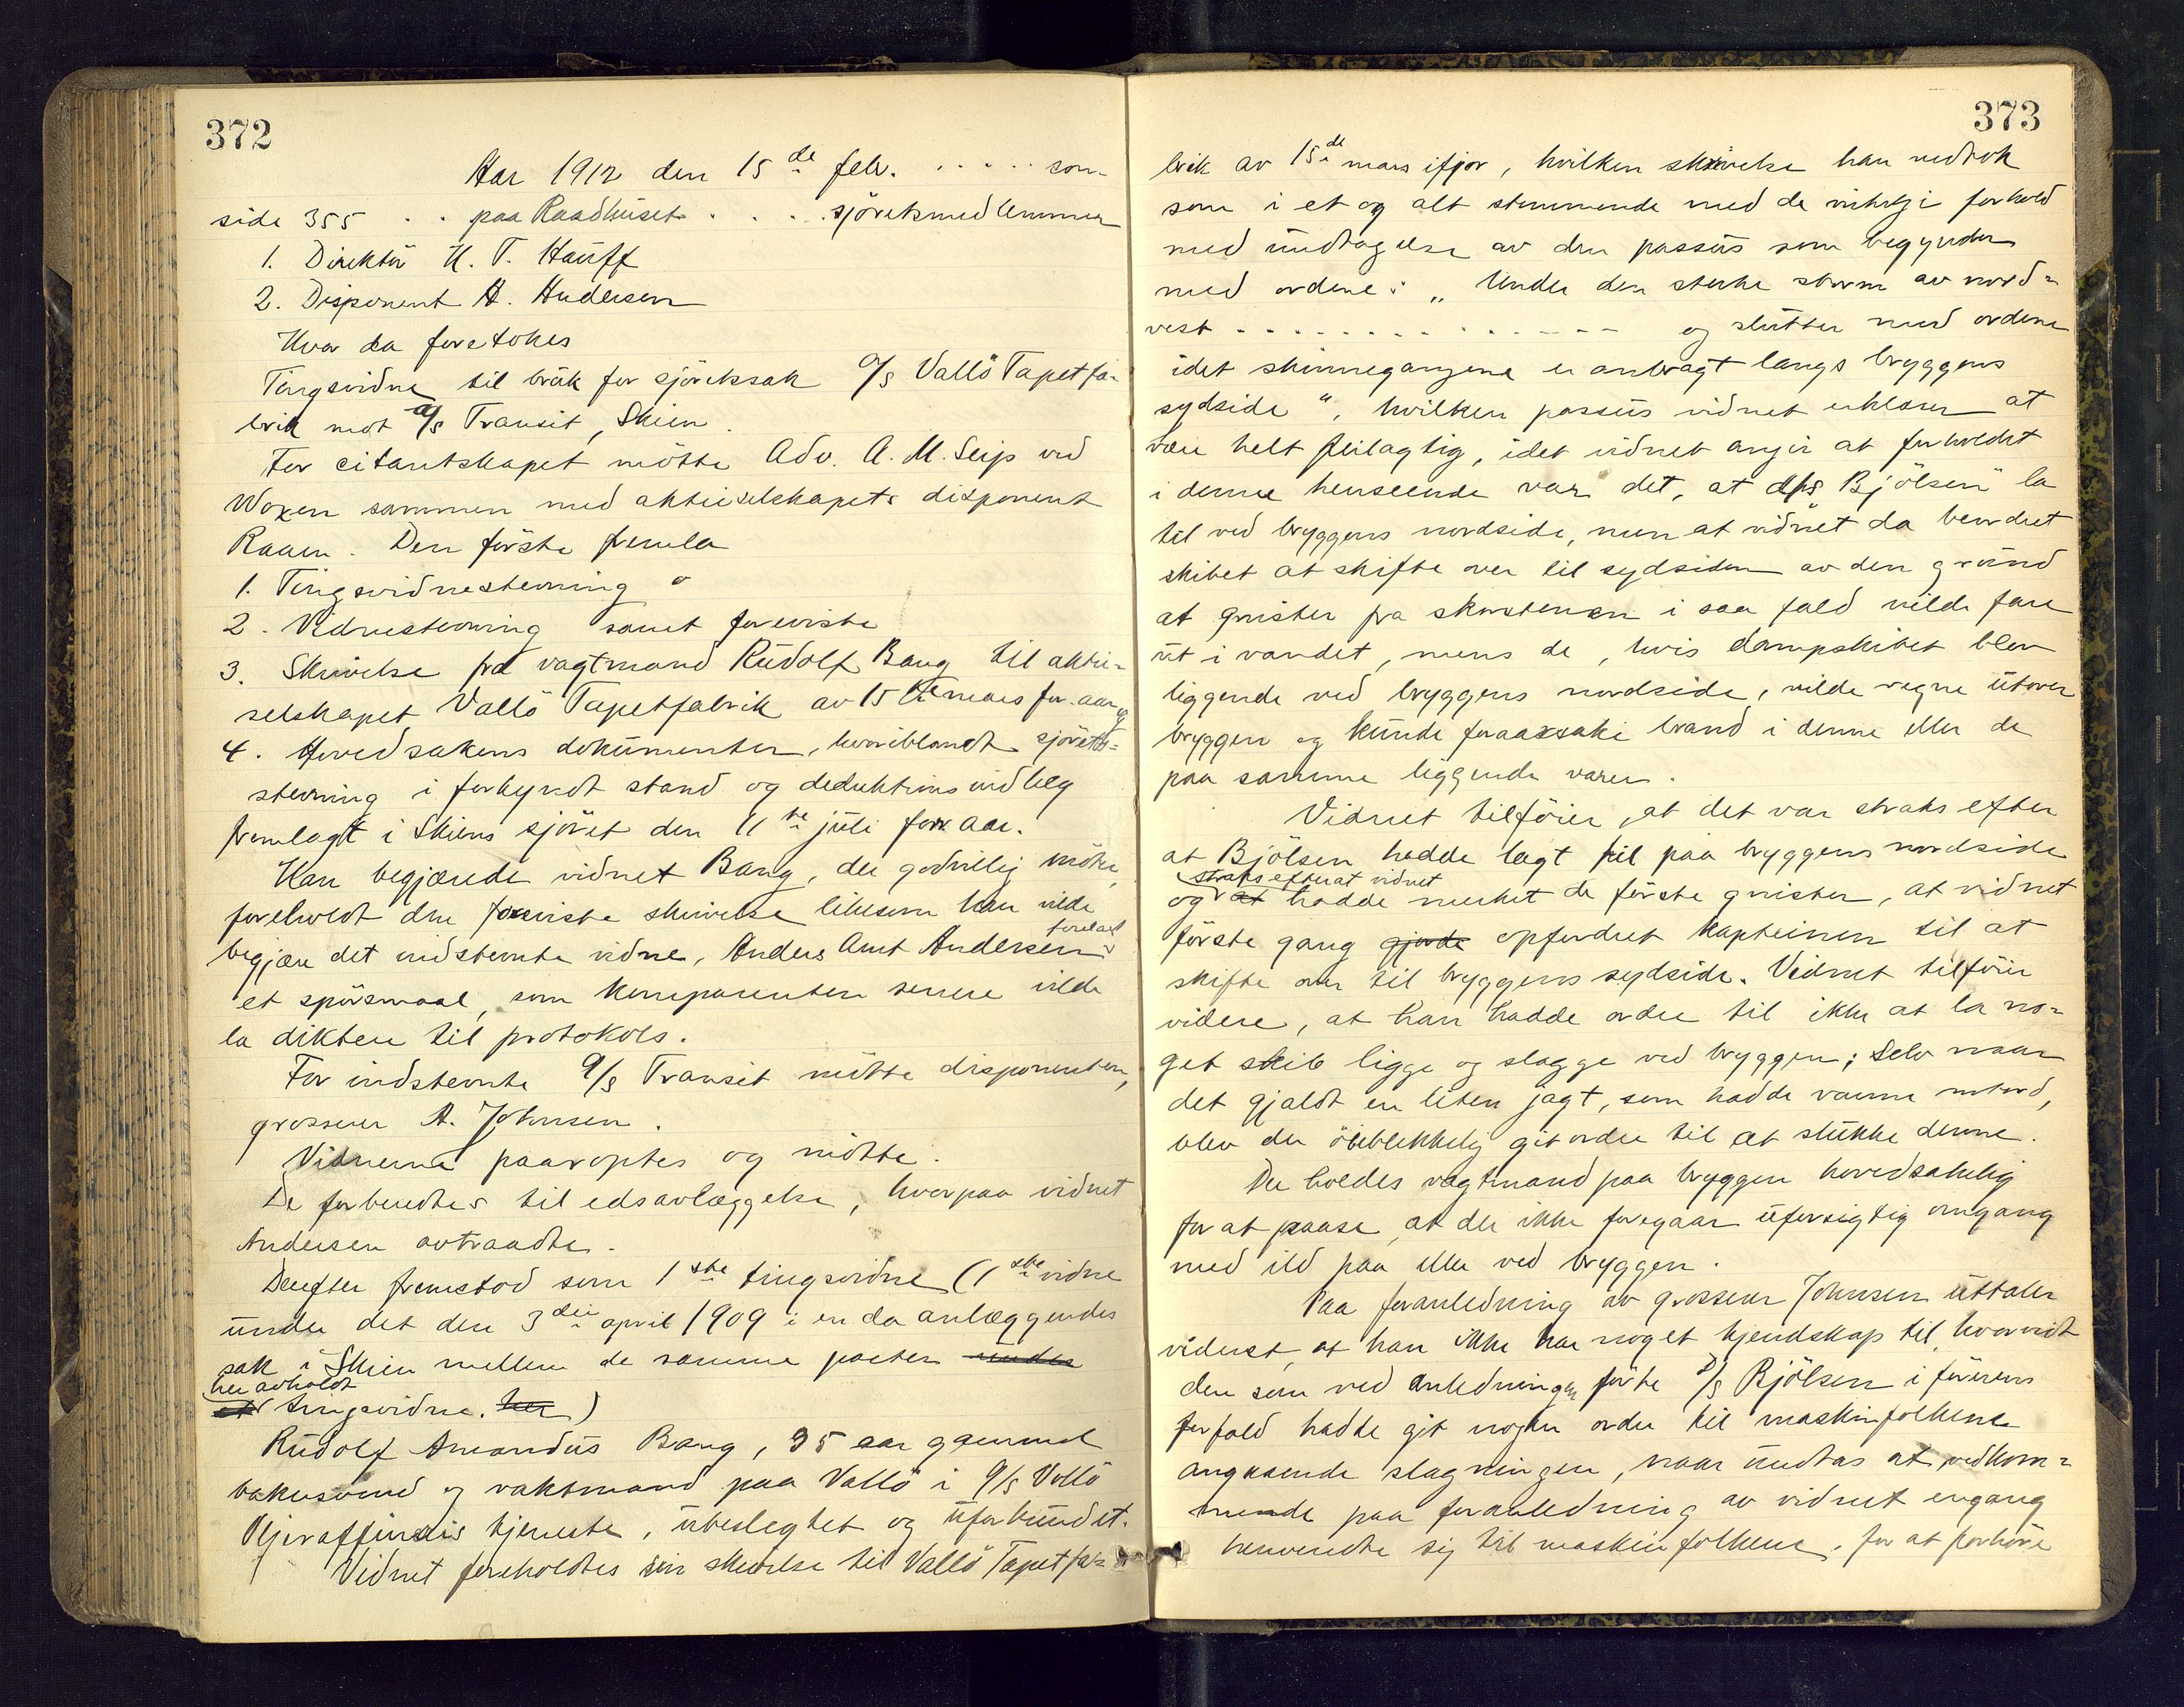 372
Aar 1912 den 15de febr. . . . . . som
side 355 . . paa Raadhuset . . . . sjöretsmedlemmer
1. Direktör H. T. Hauff
2. Disponent A. Andersen
Hvor da foretokes
Tingsvidne til bruk for sjöretssak A/S Vallö Tapetfa-
brik mot A/S Transit, Skien.
For citantskapet mötte Adv. A. M. Seip ved
Woxen sammen med aktieselskapets disponent
Raaen. Den förste fremla
1. Tingsvidnestevning o
2. Vidnestevning samt foreviste
3. Skrivelse fra vagtmand Rudolf Bang til aktie-
selskapet Vallö Tapetfabrik av 15de mars for. aar og
4. Hovedsakens dokumenter, hvoriblandt sjörets-
stevning i forkyndt stand og deduktionsindlæg
fremlagt i Skiens sjöret den 11te juli forr. aar.
Han begjærede vidnet Bang, der godvillig mötte,
foreholdt den foreviste skrivelse likesom han vilde
begjære det indstevnte vidne, Anders Amt Andersen forelagt
et spörsmaal, som komparenten senere vilde
la diktere til protokols.
For indstevnte A/S Transit mötte disponenten,
grosserer A. Johnsen.
Vidnerne paaroptes og mötte.
De forberedtes til edsavlæggelse, hvorpaa vidnet
Andersen avtraadte.
Derefter fremstod som 1ste tingsvidne (1ste vidne
under det den 3die april 1909 i en da anlæggendes
sak i Skien mellem de samme parter under
her avholdt
et tingsvidne. her)
Rudolf Amandus Bang, 35 aar g gammel
bakersvend og vaktmand paa Vallö i A/S Vallö
Oljeraffineris tjeneste, ubeslegtet og uforbundet.
Vidnet foreholdtes sin skrivelse til Vallö Tapetfa-
373
brik av 15de mars ifjor, hvilken skrivelse han vedtok
som i et og alt stemmende med de virkelige forhold
med undtagelse av den passus som begynder
med ordene: „Under den sterke storm av nord-
vest - - - - - - - - - - - - - og slutter med ordene
idet skinnegangene er anbragt langs bryggens
sydside“, hvilken passus vidnet erklærer at
være helt feilagtig, idet vidnet angir at forholdet
i denne henseende var det, at d/s Bjölsen la
til ved bryggens nordside, men at vidnet da beordret
skibet at skifte over til sydsiden av den grund
at gnister fra skorstenen i saa fald vilde fare
ut i vandet, mens de, hvis dampskibet blev
liggende ved bryggens nordside, vilde regne utover
bryggen og kunde foraarsake brand i denne eller de
paa samme liggende varer.
Vidnet tilföier, at det var straks efter
at Bjölsen hadde lagt til paa bryggens nordside
straks efterat vidnet
og at hadde merket de förste gnister, at vidnet
förste gang gjorde opfordret kapteinen til at
skifte over til bryggens sydside. Vidnet tilföier
videre, at han hadde ordre til ikke at la no-
get skib ligge og slagge ved bryggen; selv naar
det gjaldt en liten jagt, som hadde varme ombord,
blev der öieblikkelig git ordre til at slukke denne.
Der holdes vagtmand paa bryggen hovedsakelig
for at paase, at der ikke foregaar uforsigtig omgang
med ild paa eller ved bryggen.
Paa foranledning av grosserer Johnsen uttaler
vidnet, at han ikke har noget kjendskap til, hvorvidt
den som ved anledningen förte D/S Bjölsen i förerens
forfald hadde git nogen ordre til maskinfolkene
angaaende slagningen, naar undtas at vedkom-
mende paa foranledning av vidnet engang
henvendte sig til maskinfolkene for at forhöre